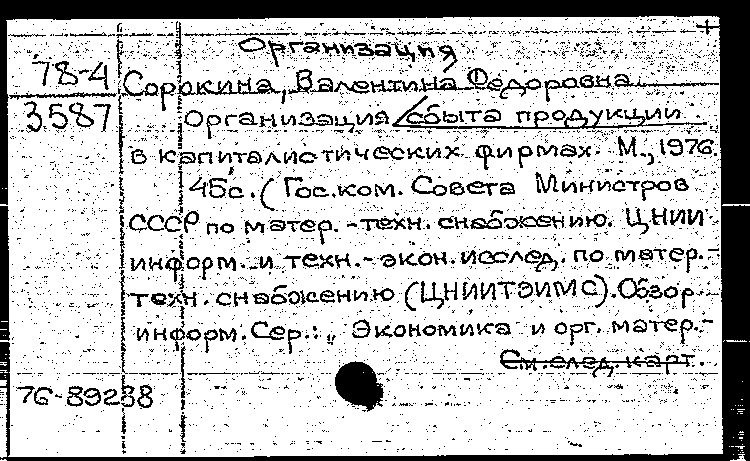 Организация
78-4
3587
Сорокина, Валентина Федоровна
Организация сбыта продукции
в капиталистических фирмах. М., 1976.
45с. (Гос.ком. Совета Министров
СССР по матер.-техн. снабжению. ЦНИИ
информ. и техн.-экон. исслед. по матер.-
техн. снабжению (ЦНИИТЭИМС). Обзор.
информ. Сер.: „Экономика и орг. матер.-
См. след. карт.
76-89238